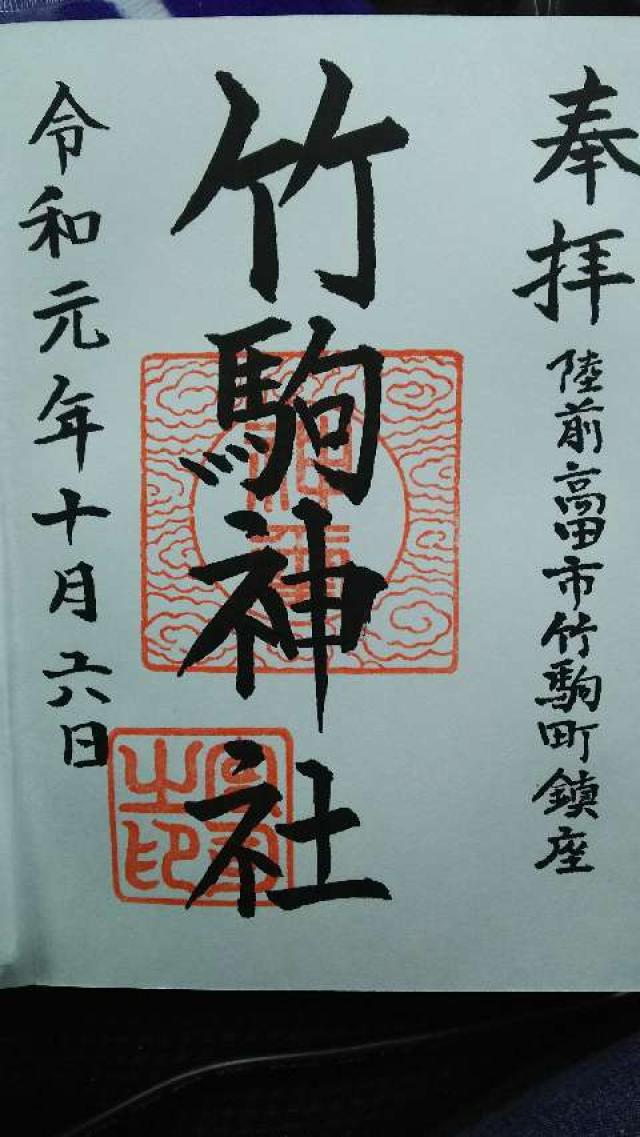 奉拝
陸前高田市竹駒町鎮座
竹駒神社
令和元年十月六日